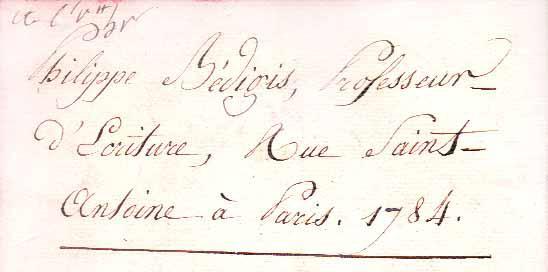 Philippe Bédigis, Professeur
d'Ecriture, Rue Saint-
Antoine à Paris. 1784.